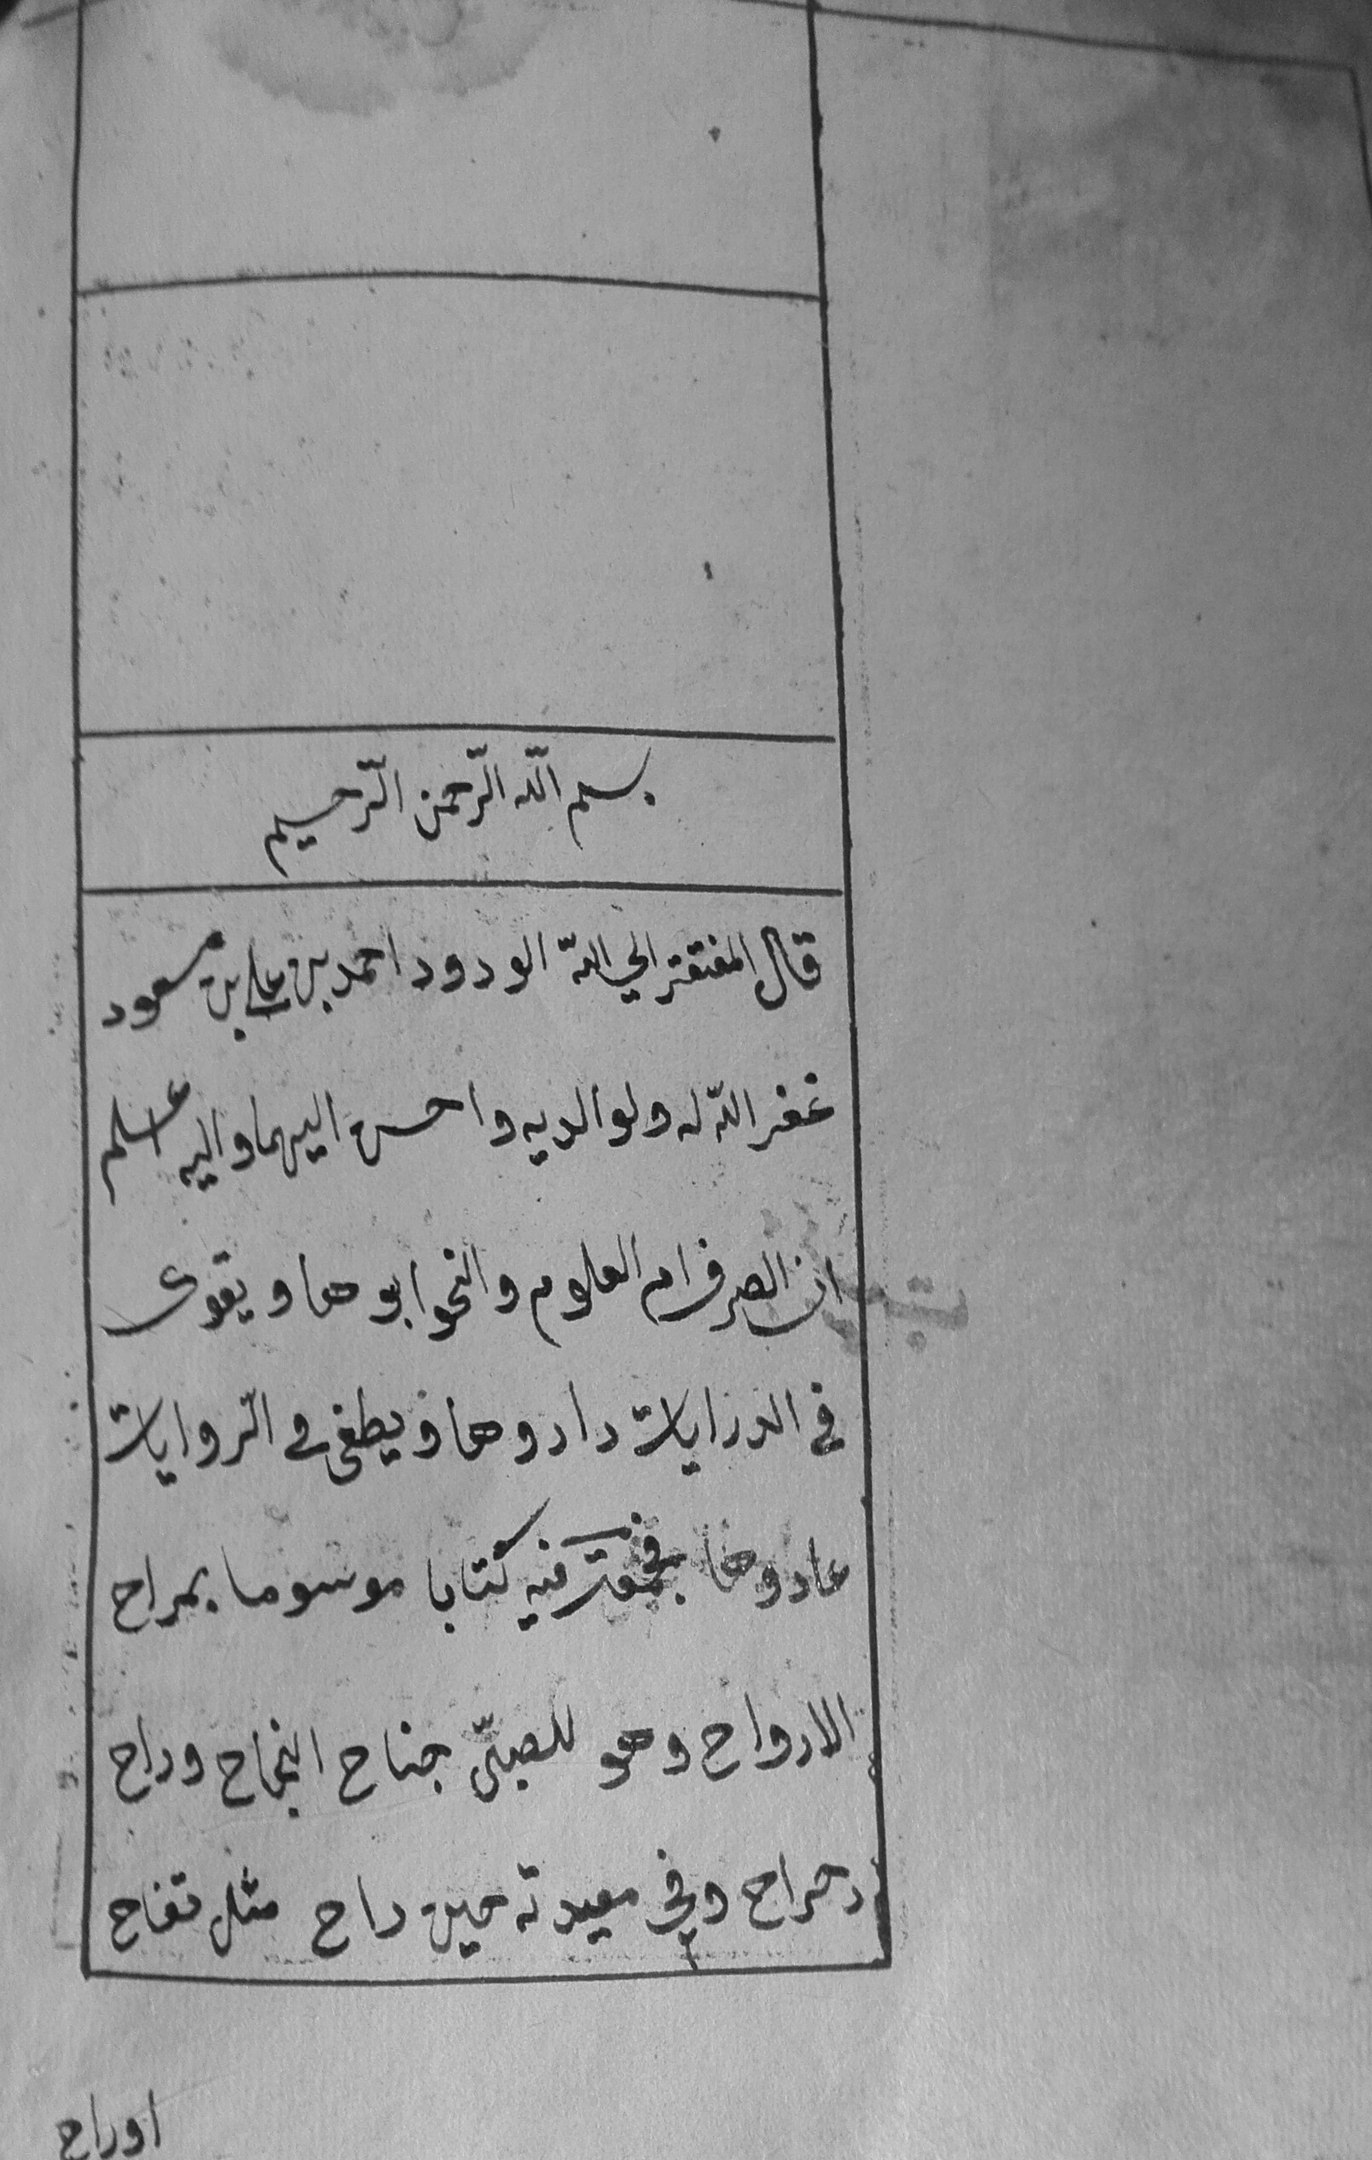 بسم اللّه الرّحمن الرّحيم
قال المفتقر الي اللّه الودود احمد بن علي بن مسعود
غفر اللّه له ولوالديه واحسن اليهما واليه اعلم
ان الصرف ام العلوم والنحو ابوها ويقوى
في الدرايات داروها ويطغى في الرّوايات
عاروها فجمعت فيه كتابا موسوما بمراح
الارواح وهو للصبيّ جناح النجاح وراح
رحراح وفي معدته حين راح مثل تفاح
اوراح